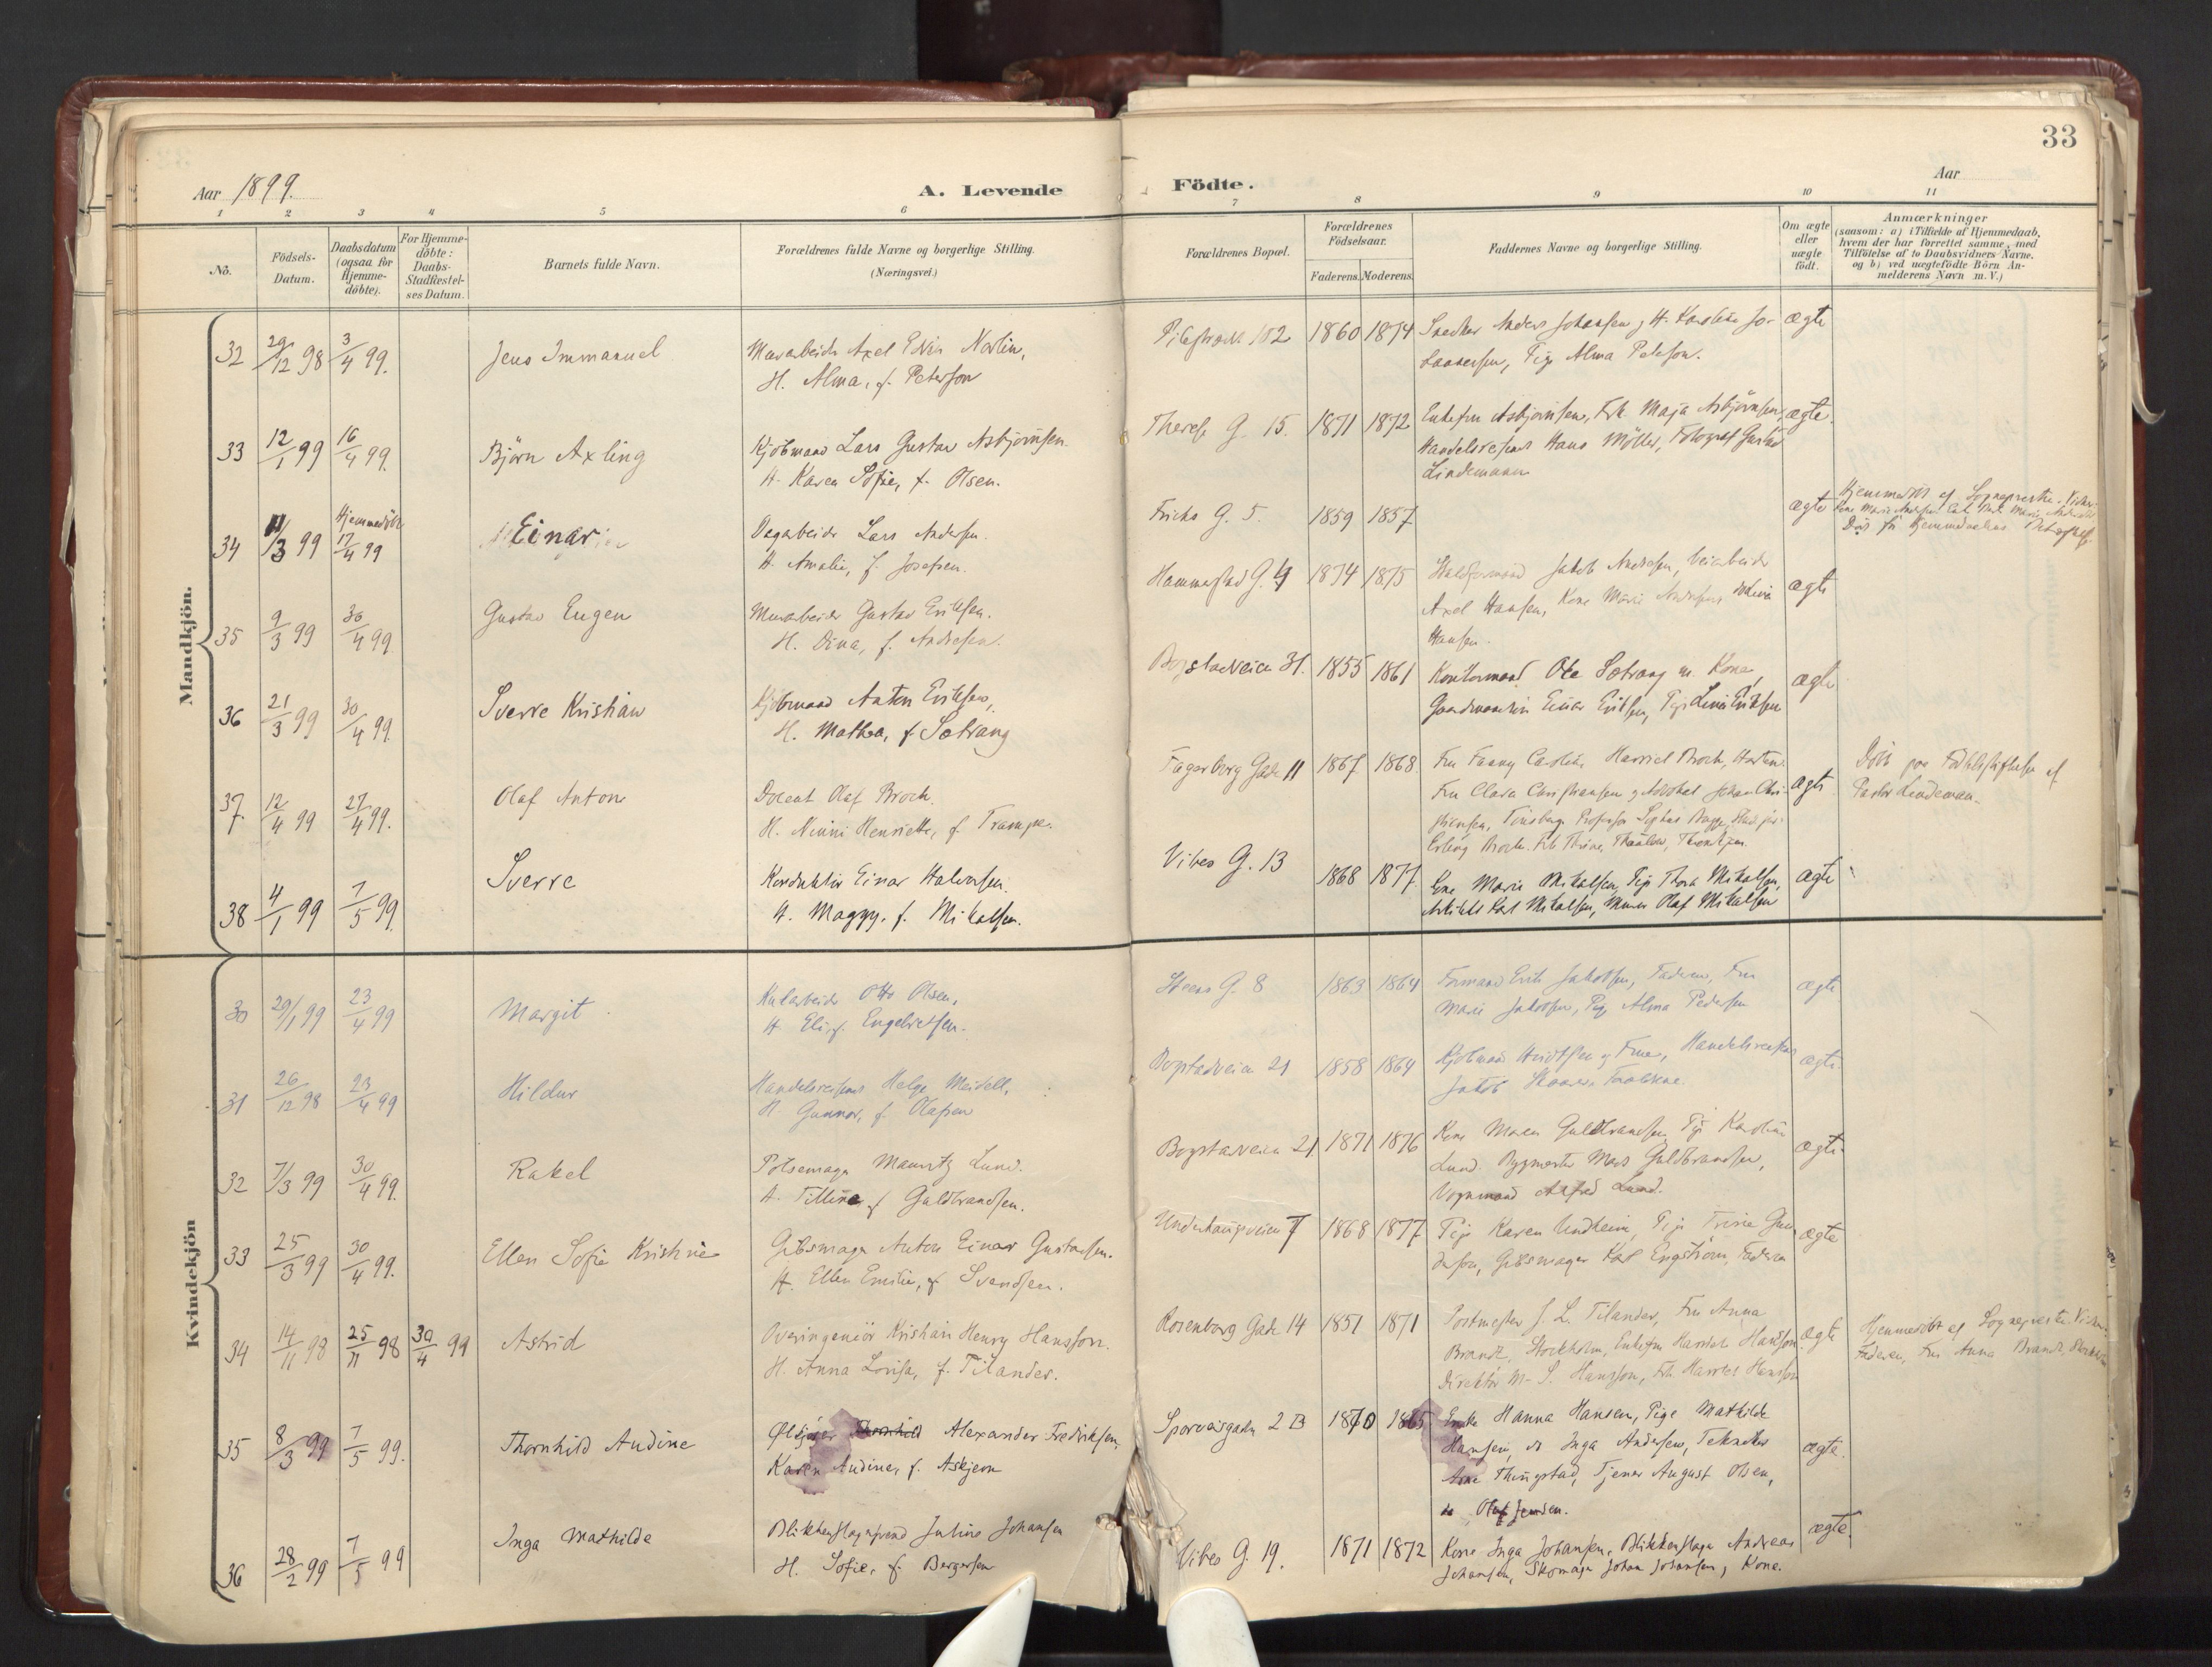 33
Aar 1899.
A. Levende
Födte.
Aar
1 2 3 4 5 6 7 8 9 10 11
No.
Födsels-
Datum.
Daabsdatum
(ogsaa for
Hjemme-
döbte).
For Hjemme-
döbte:
Daabs-
Stadfæstel-
ses Datum.
Barnets fulde Navn.
Forældrenes fulde Navne og borgerlige Stilling.
(Næringsvei.)
Forældrenes Bopæl.
Forældrenes
Födselsaar.
Faderens. Moderens.
Faddernes Navne og borgerlige Stilling.
Om ægte
eller
uægte
födt.
Anmærkninger
(saasom: a) i Tilfælde af Hjemmedaab,
hvem der har forrettet samme, med
Tilföielse af to Daabsvidners Navne.
og b) ved uægtefödte Börn An-
melderens Navn m. V.)
Mandkjön.
32 29/12 98 3/4 99. Jens Immanuel
Murarbeider Axel Edvin Norlin,
H. Alma, f. Peterson
Pilestrædet 102 1860 1874
Snedker Anders Johansen, H. Karoline
Pige Alma Peterson.
ægte
33 12/1 99 16/4 99. Björn Axling
Kjöbmand Lars Gustav Asbjörnsen
H. Karen Sofie, f. Olsen.
Therese G. 15. 1871 1872
Enkefru Asbjörnsen, Frk. Maja Asbjörnsen,
Handelsreisende Hans Möller, Fotograf Gustav
Lindemann
ægte.
34 11/3 99 Hjemmedöbt
17/4 99 Einar
Vegarbeider Lars Andersen.
H. Amalie, f. Josefsen.
Frichs G. 5. 1859 1857
ægte
Hjemmedöbt af Sogneprest
35 9/3 99 30/4 99. Gustav Eugen
Murarbeider Gustav Eriksen.
H. Dina, f. Andresen.
Hammerstad G. 4 1874 1875
Jakob Andresen, Veiarbeider
Axel Hansen, Kone Marie
Hansen.
ægte
36 21/3 99 30/4 99. Sverre Kristian
Kjöbmand Anton Eriksen,
H. Mathea, f. Sotrang
Bogstadveien 31. 1855 1861
Ole Sotrang m. Kone,
Einar Eriksen, Pige Eriksen
ægte
37. 12/4 99 27/4 99. Olaf Anton
Docent Olaf Broch.
H. Ninni Henriette, f. Trampe.
Fagerborg Gade 11 1867 1868
Fru Fanny Caroline Harriet Broch, Horten.
Fru Clara Christiansen og Advokat Johan Chri-
stiansen, Professor Sophus
Broch. Frk.
ægte
Döbt paa Födselsstiftelsen af
Pastor Lindeman.
38 4/1 99 7/5 99. Sverre
Konduktör Einar Halvorsen.
H. Maggy. f. Mikalsen.
Vibes G. 13 1868 1877.
Kone Marie Mikalsen, Pige Thora Mikalsen,
Arkitekt Karl Mikalsen, Murer Olaf Mikalsen
ægte
Kvindekjön
30 29/1 99 23/4 99 Margit
Otto Olsen,
H. Eli, f. Engebretsen.
Steens G. 8 1863 1864
Formand Erik Jakobsen, Faderen, Fru
Marie Jakobsen, Pige Alma Pedersen
ægte
31 26/12 98 23/4 99 Hildur
Handelsreisende Helge Meidell,
H. Gunnor, f. Olafsen
Bogstadveien 21 1858 1864
Kjöbmand og Frue, Handelsreisende
Jakob
ægte.
32 7/3 99 30/4 99. Rakel
Pölsemager Mauritz Lund.
H. Tilline, f. Guldbrandsen.
Bogstadveien 21. 1871 1876
Kone Maren Guldbrandsen, Pige Karoline
Lund. Bygmester Guldbrandsen,
Vognmand Alfred Lund.
ægte.
33 25/3 99 30/4 99. Ellen Sofie Kristine
Gibsmager Anton Einar Gustavsen.
H. Ellen Emilie, f. Svendsen.
Underhaugsveien 7 1868 1877
Pige Karen Lindheim, Pige Trine Gun-
dersen, Gibsmager Karl Engström, Faderen
ægte
34 14/11 98 25/11 98 30/4 99 Astrid
Overingeniör Kristian Henry Hansson.
H. Anna Lovisa, f. Tilander.
Rosenborg Gade 14 1851 1871
Postmester J. L. Tilander, Fru Anna
Brandt, Stockholm, Enkefru Harriet Hansson,
Direktör M. S. Hansson, Frk. Harriet Hansson
ægte
Hjemmedöbt af Sogneprest
Faderen, Fru Anna Brandt, Stockholm
35 8/3 99 7/5 99. Thornhild Audine
Ölkjörer Thornhild Alexander Fredriksen,
Karen Audine, f. Askjem
Sporveisgaden 2 B 1870 1865
Enke Hanna Hansen, Pige Mathilde
Hansen, do Inga Andersen, Tekniker
Arne Thingstad, Tjener August Olsen,
do Olaf Jensen.
ægte.
36 28/2 99 7/5 99 Inga Mathilde
Blikkenslagersvend Julius Johansen
H. Sofie, f. Bergersen
Vibes G. 19. 1871 1872
Kone Inga Johansen, Blikkenslager Andreas
Johansen, Skomager Johan Johansen, Kone.
ægte.